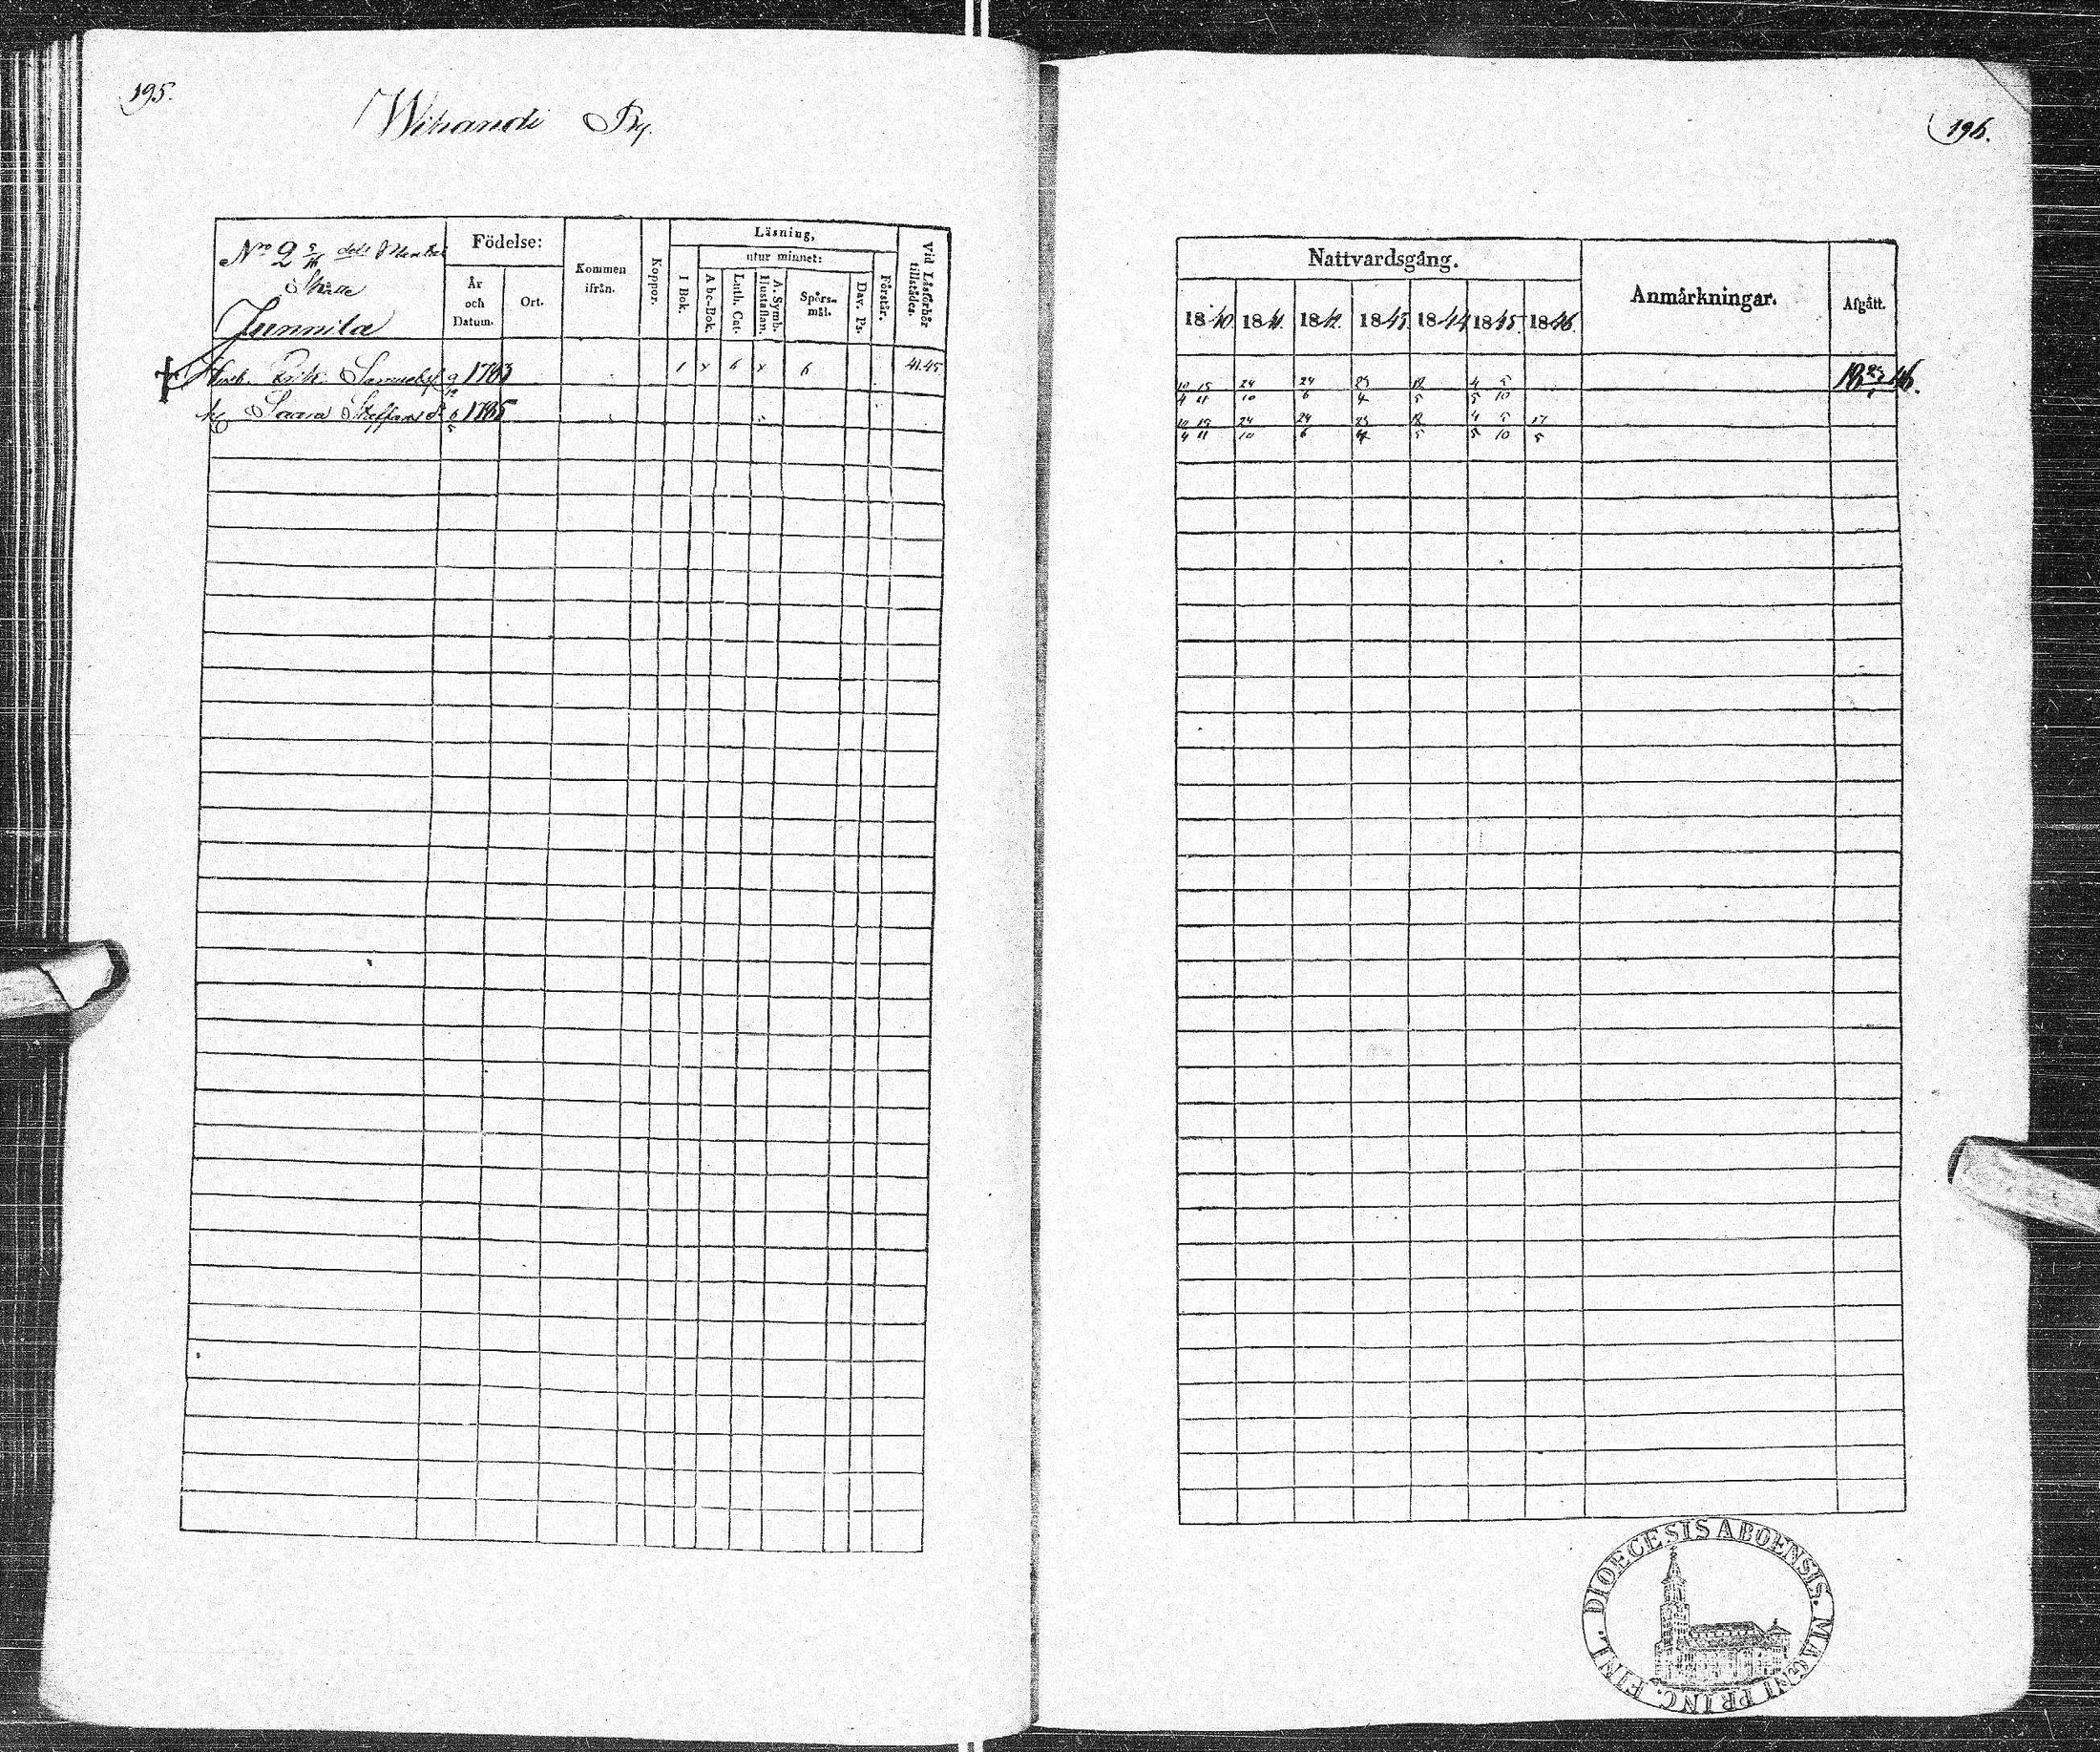 195.
Wihandi By.
Nro 2 5/16 dels Mantal
Skatte
Junnila
Födelse:
År och Datum.
Ort.
Kommen ifrån.
Koppor.
Läsning,
utur minnet:
I Bok.
Abc-Bok.
Luth. Cat.
A. Symb. Hustaflan.
Spörsmål.
Dav. Ps.
Förstår.
Vid Läsförhör tillstädes.
Erik Samuelss 9/12 1763 1 x 6 x 6 41.45
h Saara Steffansdr 6/5 1765
196.
Nattvardsgång.
Anmärkningar.
Afgått.
1840. 1841. 1842. 1843. 1844. 1845. 1846.
10/4 15/11 24/10 24/6 23/4 12/5 4/5 5/10
10/4 15/11 24/10 24/6 23/4 12/5 4/5 5/10 17/5
DIOECESIS ABOENSIS. MAGNI PRINC. FINL.